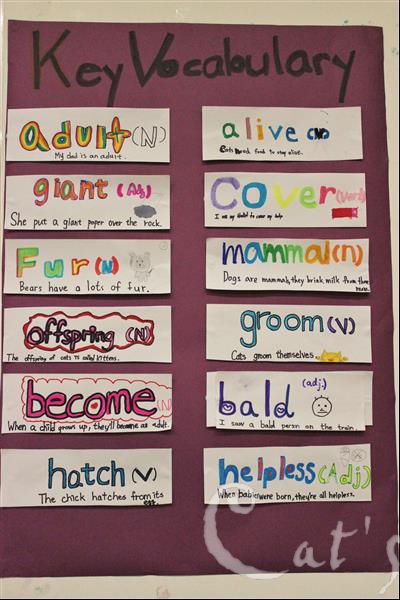 Key Vocabulary
adult (N)
My dad is an adult.
alive
Cats need food to stay alive.
giant (Adj)
She put a giant paper over the rock.
Cover (verb)
to cover my
Fur (N)
Bears have a lots of fur.
mammal (n)
Dogs are mammals, they drink milk from their
mom.
offspring (N)
The offspring of cats is called kittens.
groom (v)
Cats groom themselves.
become (N)
When a child grows up, they'll become an adult.
bald (adj.)
I saw a bald person on the train.
hatch (v)
The chick hatches from its
egg.
helpless (Adj)
When babies were born, they're all helpless.
Cat's